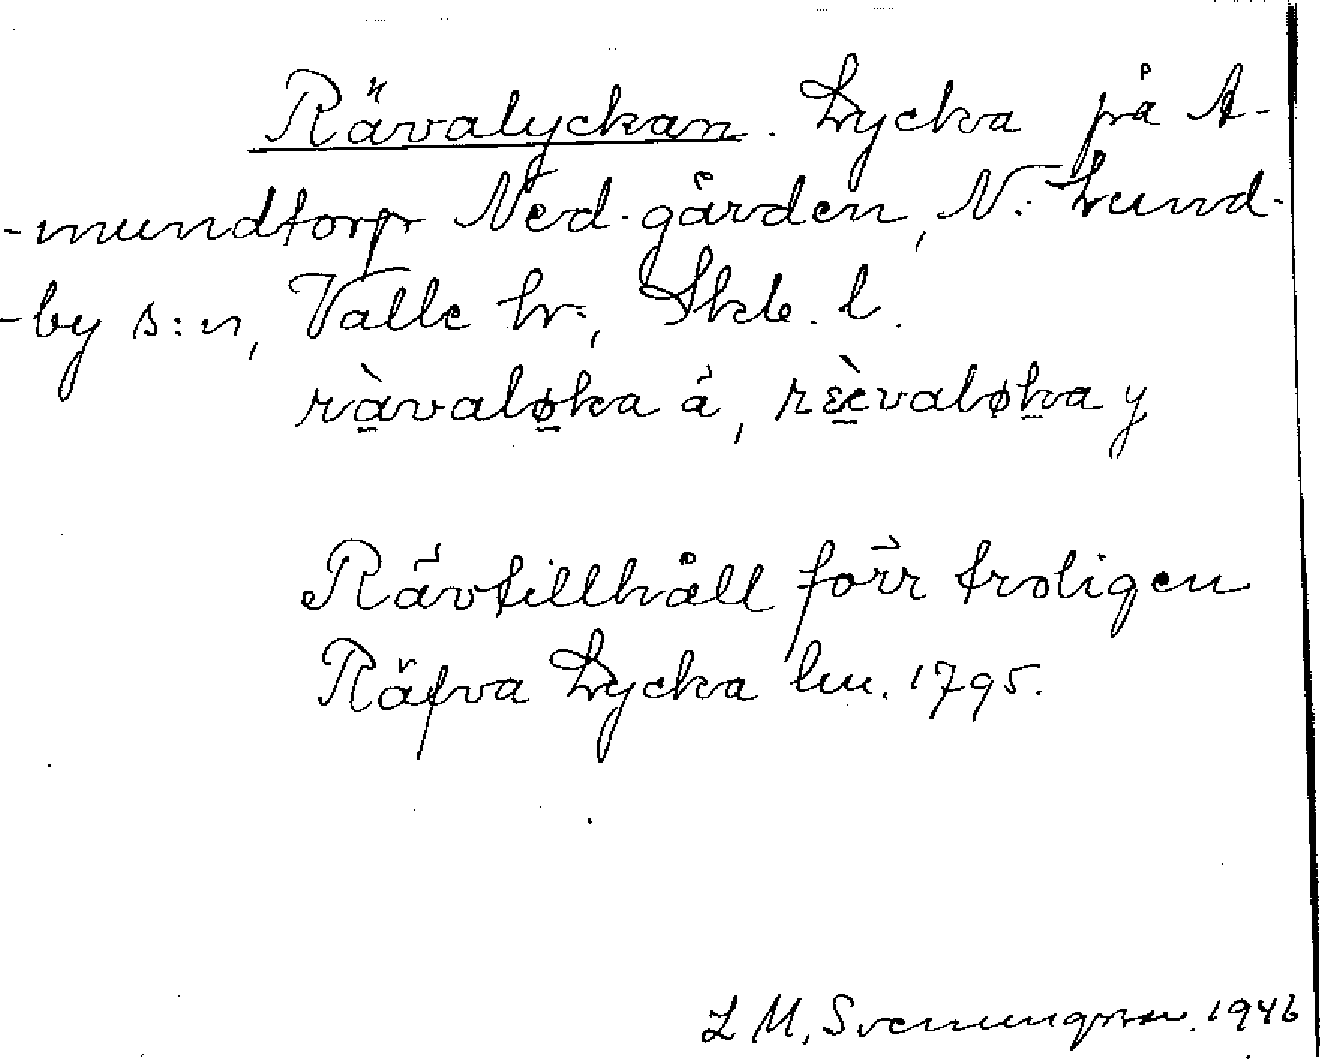 Rävalyckan. Lycka på A-
-mundtorp Ned-gården, N. Lund-
-by s:n, Valle hr, Skb. l.
ràvaløka å, rɛ̀valøka y
Rävtillhåll förr troligen
Räfva Lycka lm. 1795.
L M, Svenungsson. 1946